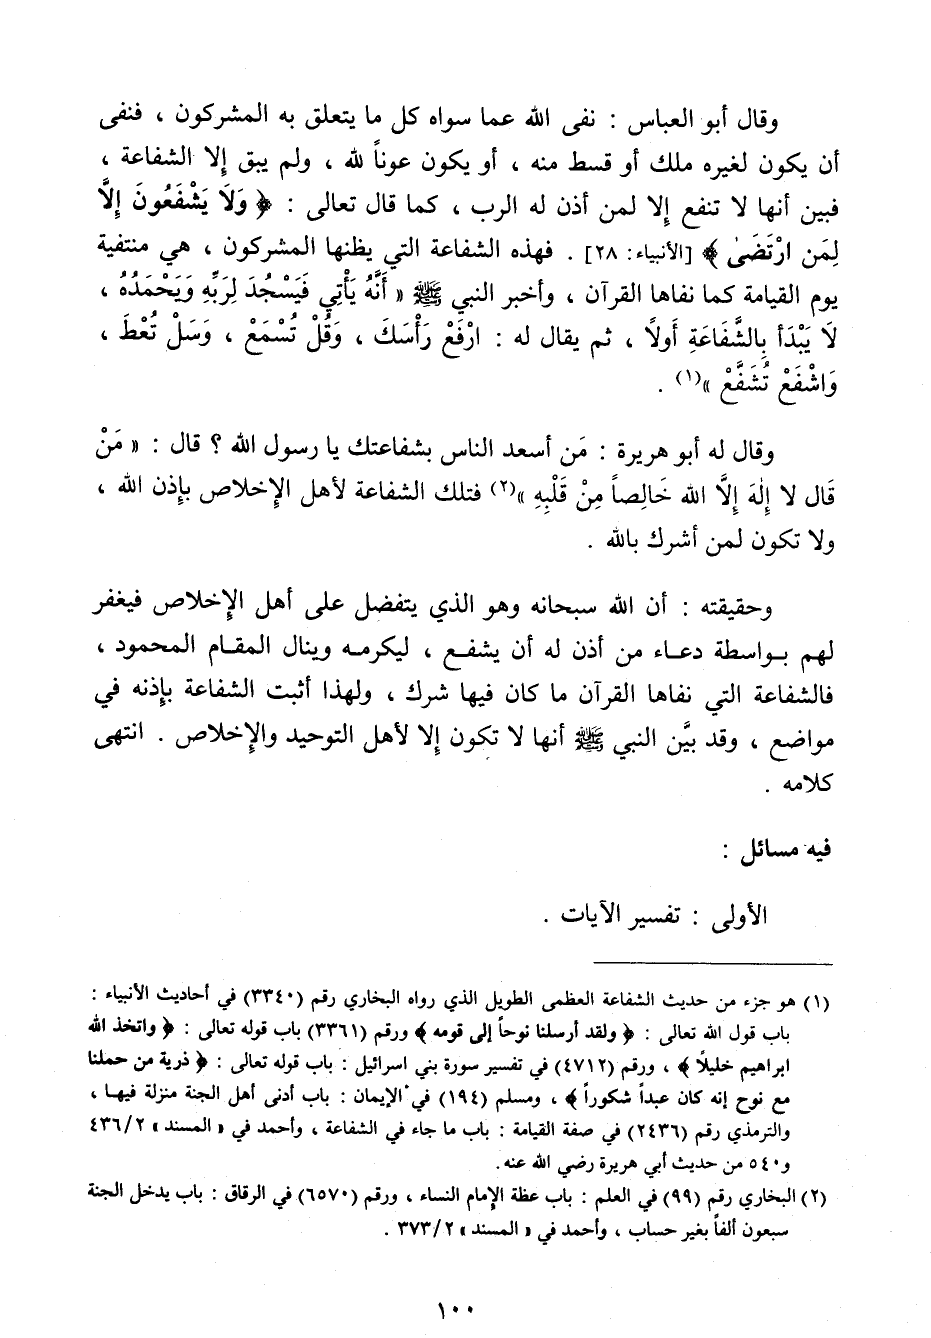 وقال أبو العباس : نفى الله عما سواه كل ما يتعلق به المشركون ، فنفى
أن يكون لغيره ملك أو قسط منه ، أو يكون عوناً لله ، ولم يبق إلا الشفاعة ،
فبين أنها لا تنفع إلا لمن أذن له الرب ، كما قال تعالى : ﴿ وَلَا يَشْفَعُونَ إِلَّا
لِمَنِ ارْتَضَىٰ ﴾ [الأنبياء: ٢٨] . فهذه الشفاعة التي يظنها المشركون ، هي منتفية
يوم القيامة كما نفاها القرآن ، وأخبر النبي ﷺ « أَنَّهُ يَأْتِي فَيَسْجُدَ لِرَبِّهِ وَيَحْمَدُهُ ،
لَا يَبْدَأ بِالشَّفَاعَةِ أَولاً ، ثم يقال له : ارْفَعْ رَأْسَكَ ، وَقُلْ تُسْمَعْ ، وَسَلْ تُعْطَ ،
وَاشْفَعْ تُشَفَّعْ »(١) .
وقال له أبو هريرة : مَن أسعد الناس بشفاعتك يا رسول الله ؟ قال : « مَنْ
قَال لا إِلٰهَ إِلَّا الله خَالِصاً مِنْ قَلْبِهِ »(٢) فتلك الشفاعة لأهل الإخلاص بإذن الله ،
ولا تكون لمن أشرك بالله .
وحقيقته : أن الله سبحانه وهو الذي يتفضل على أهل الإخلاص فيغفر
لهم بواسطة دعاء من أذن له أن يشفع ، ليكرمه وينال المقام المحمود ،
فالشفاعة التي نفاها القرآن ما كان فيها شرك ، ولهذا أثبت الشفاعة بإذنه في
مواضع ، وقد بيَّن النبي ﷺ أنها لا تكون إلا لأهل التوحيد والإخلاص . انتهى
كلامه .
فيه مسائل :
الأولى : تفسير الآيات .
(١) هو جزء من حديث الشفاعة العظمى الطويل الذي رواه البخاري رقم (٣٣٤٠) في أحاديث الأنبياء :
باب قول الله تعالى : ﴿ ولقد أرسلنا نوحاً إلى قومه ﴾ ورقم (٣٣٦١) باب قوله تعالى : ﴿ واتخذ الله
ابراهيم خليلاً ﴾ ، ورقم (٤٧١٢) في تفسير سورة بني اسرائيل : باب قوله تعالى : ﴿ ذرية من حملنا
مع نوح إنه كان عبداً شكوراً ﴾ ، ومسلم (١٩٤) في الإيمان : باب أدنى أهل الجنة منزلة فيها ،
والترمذي رقم (٢٤٣٦) في صفة القيامة : باب ما جاء في الشفاعة ، وأحمد في « المسند » ٤٣٦/٢
و٥٤٠ من حديث أبي هريرة رضي الله عنه.
(٢) البخاري رقم (٩٩) في العلم : باب عظة الإمام النساء ، ورقم (٦٥٧٠) في الرقاق : باب يدخل الجنة
سبعون ألفاً بغير حساب ، وأحمد في « المسند » ٣٧٣/٢ .
١٠٠